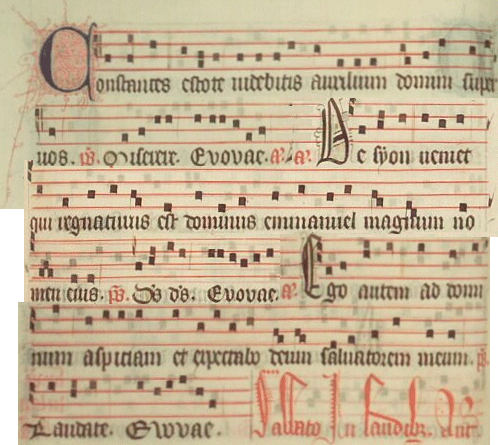 Constantes estote videbitis auxilium domini super
uos. ps. Miserere. Evovae. a. a. De syon veniet
qui regnaturus est dominus emmanuel magnum no
men eius. ps. Ds ds. Evovae. a. Ego autem ad domi
num aspiciam et expectabo deum saluatorem meum. ps.
Laudate. Evovae. Sabbato In laudibz. Ant.